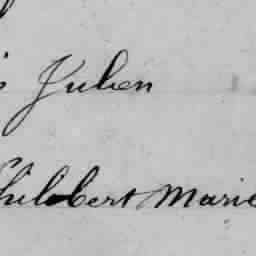 Julien
Philibert Marie